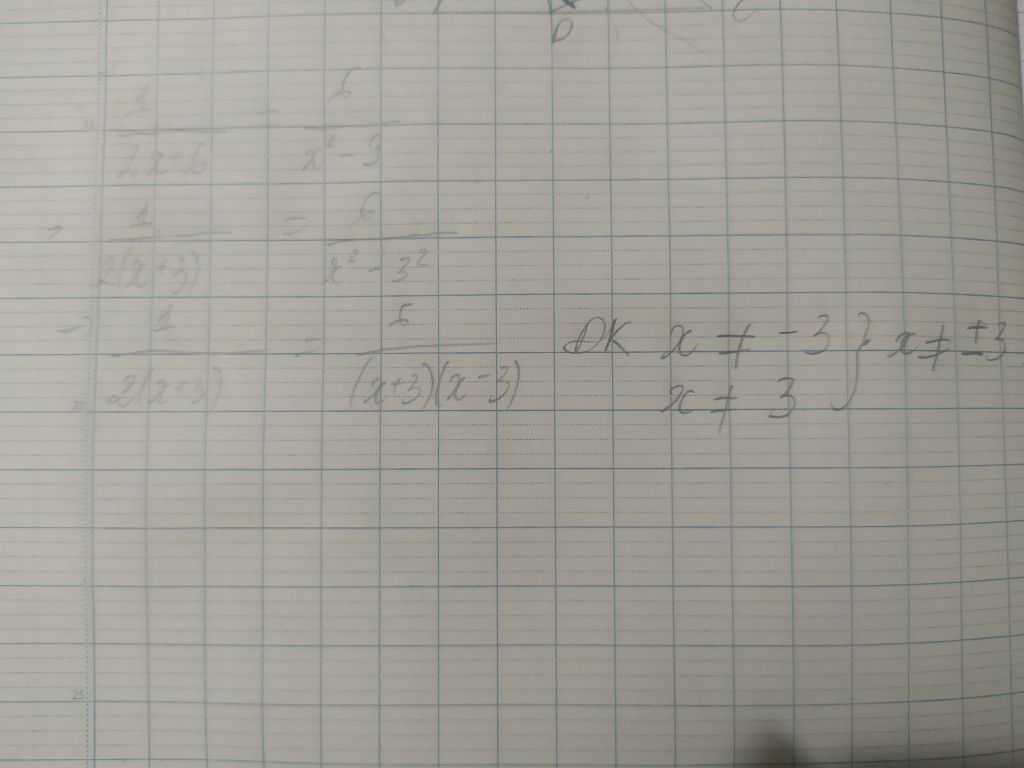 D C
1/(2x+6) = 6/(x²-9)
→ 1/(2(x+3)) = 6/(x²-3²)
→ 1/(2(x+3)) = 6/((x+3)(x-3)) ĐK x ≠ -3 } x ≠ ±3
x ≠ 3
15
20
25